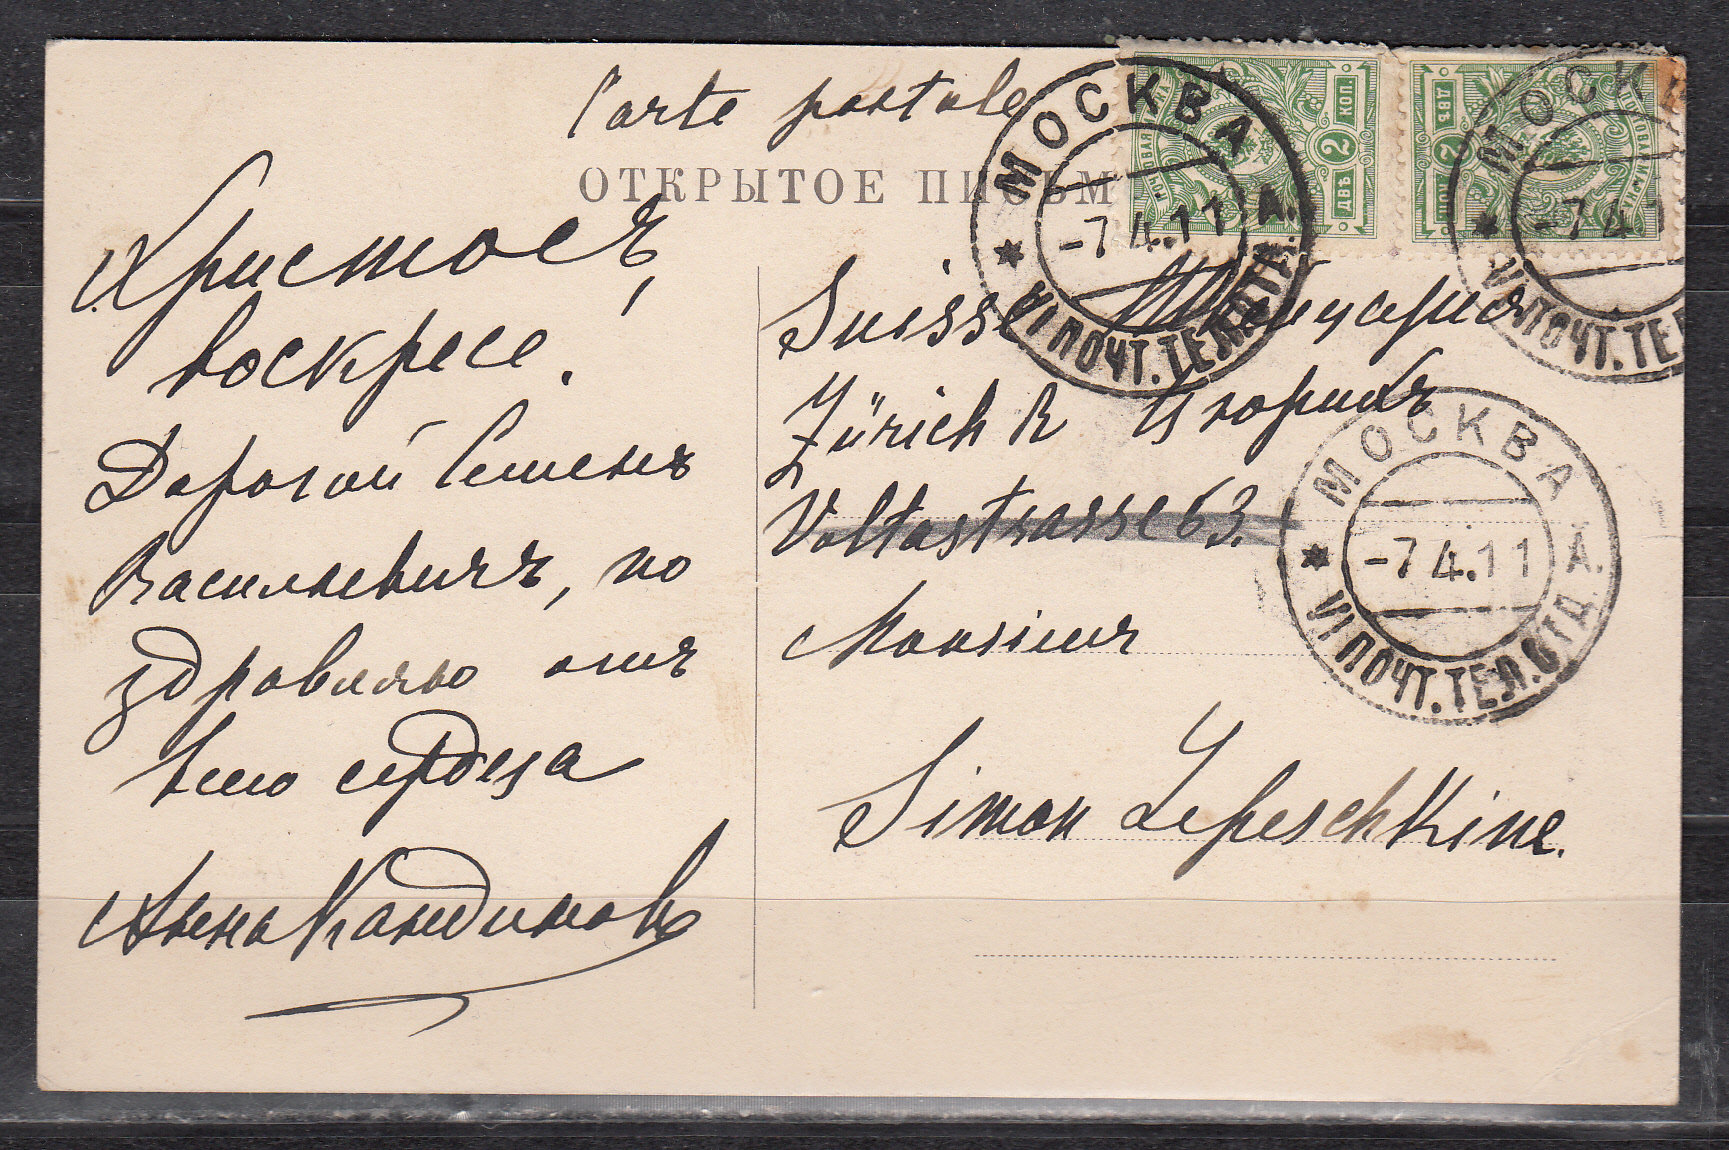 Carte postale
ОТКРЫТОЕ ПИСЬМ
Христосъ
воскресе.
Дорогой Семенъ
Васильевичъ, по
здравляю отъ
всего сердца
Suisse Швейцарія
Zürich Цюрихъ
Voltastrasse 63.
Monsieur
Simon Lepeschkine.
МОСКВА
-7 4.11
А.
VI ПОЧТ.ТЕЛ.ОТД.
МОСК
-7 4 1
VI ПОЧТ.ТЕЛ
МОСКВА
-7 4.11
А.
VI ПОЧТ.ТЕЛ.ОТД.
2
КОП.
ДВѢ
2
КОП.
ДВѢ